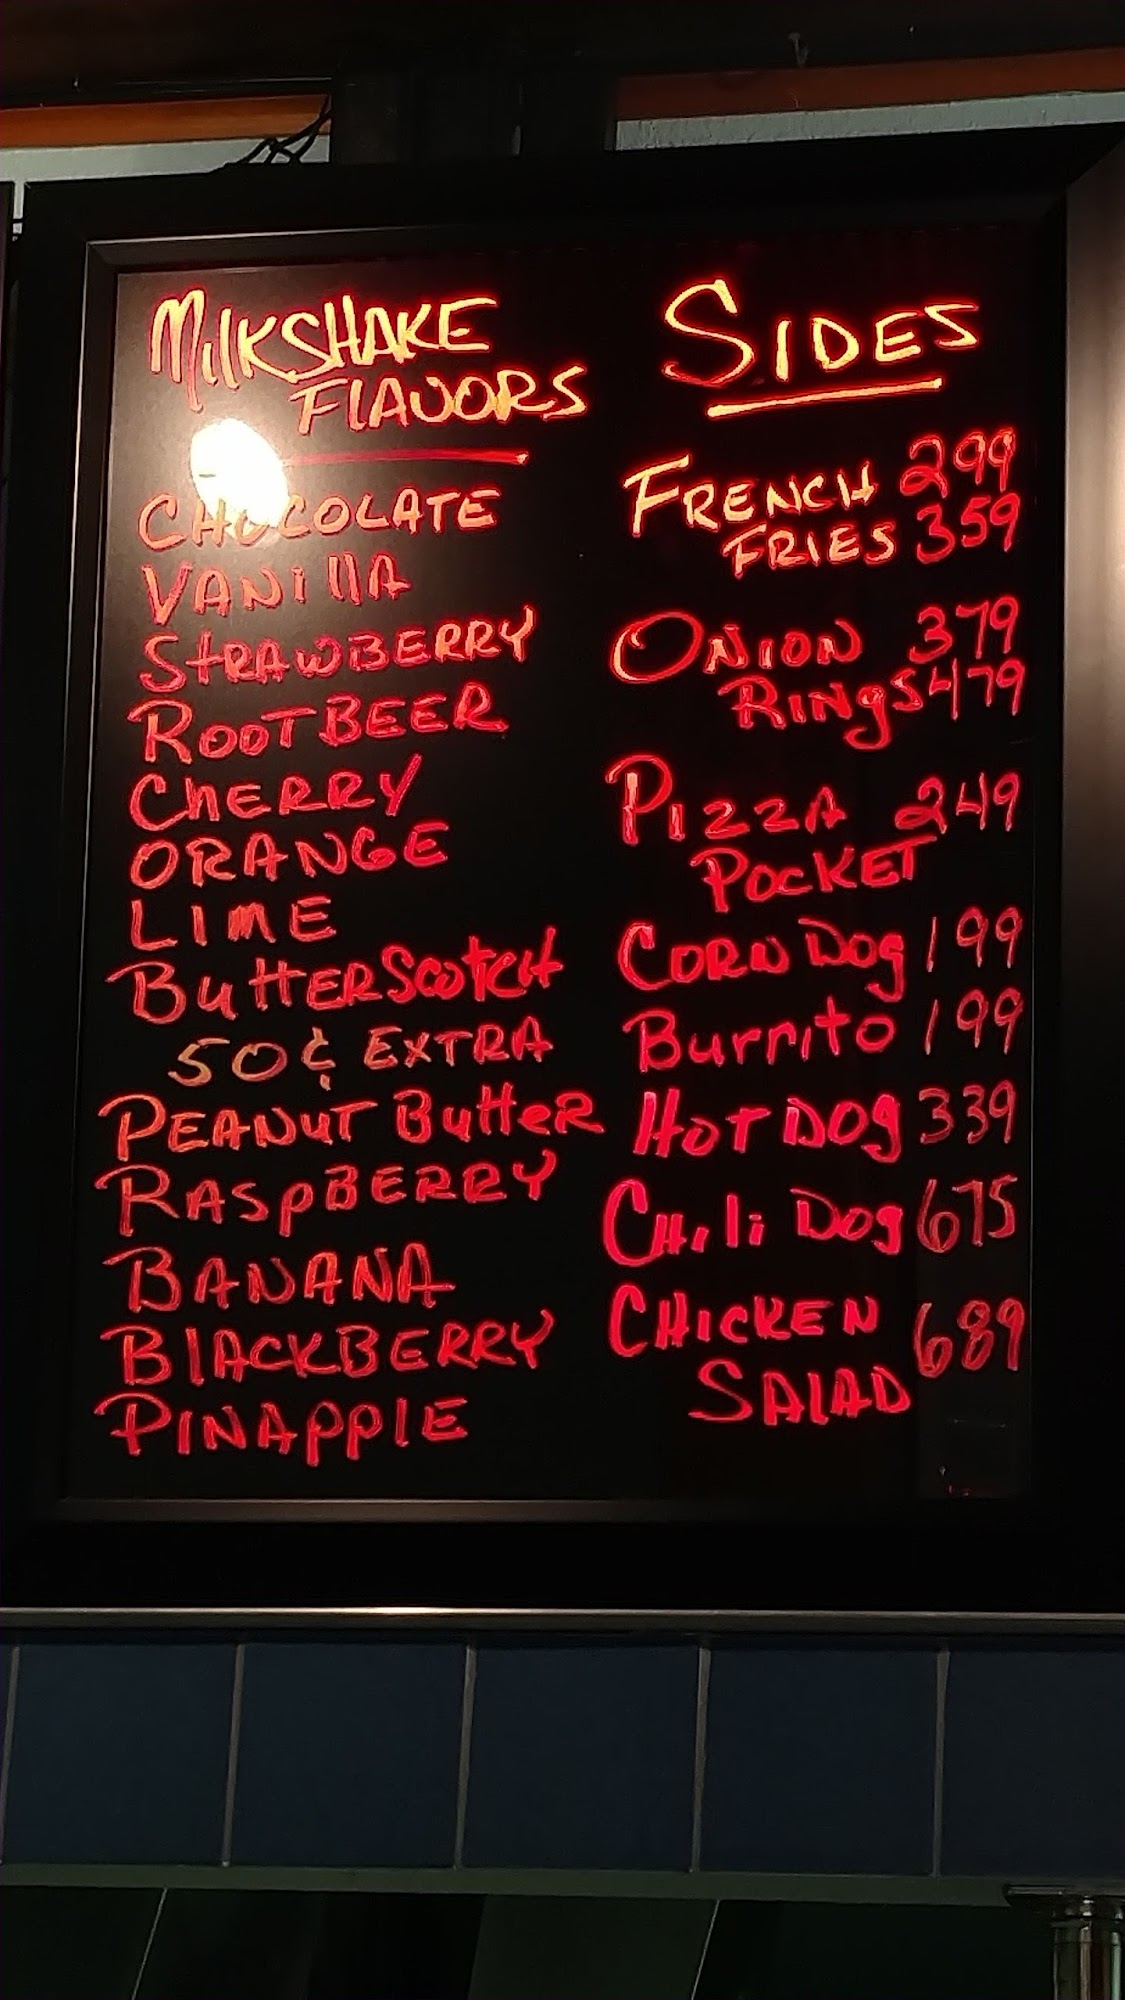 MilkSHAKE
FlAVORS
CHOCOLATE
VANIllA
STRAWBERRY
ROOTBEER
CHERRY
ORANGE
LIME
ButtERScotcH
50¢ EXTRA
PEANUT ButteR
RASpBERRY
BANANA
BlACKBERRY
PINAPPlE
SIDES
FRENCH 299
FRIES 359
ONION 379
RINgS 479
PIZZA 249
POCKET
CORN DOg 199
Burrito 199
HOT DOg 339
CHili DOg 675
CHICKEN 689
SAlAD